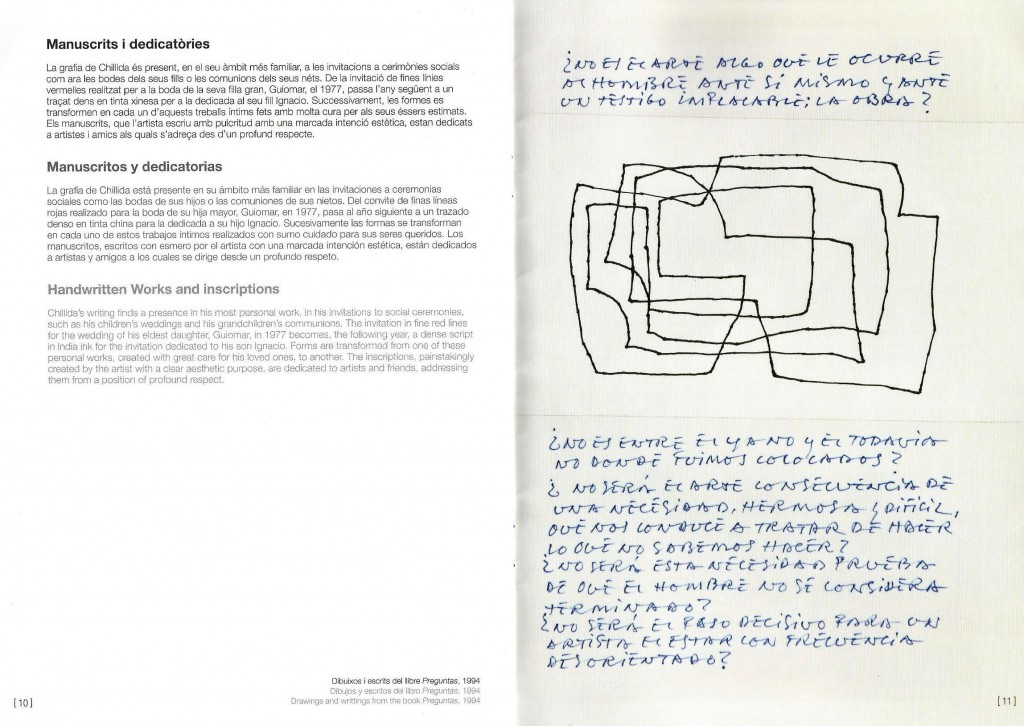 Manuscrits i dedicatòries
La grafia de Chillida és present, en el seu àmbit més familiar, a les invitacions a cerimònies socials
com ara les bodes dels seus fills o les comunions dels seus néts. De la invitació de fines línies
vermelles realitzat per a la boda de la seva filla gran, Guiomar, el 1977, passa l'any següent a un
traçat dens en tinta xinesa per a la dedicada al seu fill Ignacio. Successivament, les formes es
transformen en cada un d'aquests treballs íntims fets amb molta cura per als seus éssers estimats.
Els manuscrits, que l'artista escriu amb pulcritud amb una marcada intenció estètica, estan dedicats
a artistes i amics als quals s'adreça des d'un profund respecte.
Manuscritos y dedicatorias
La grafía de Chillida está presente en su ámbito más familiar en las invitaciones a ceremonias
sociales como las bodas de sus hijos o las comuniones de sus nietos. Del convite de finas líneas
rojas realizado para la boda de su hija mayor, Guiomar, en 1977, pasa al año siguiente a un trazado
denso en tinta china para la dedicada a su hijo Ignacio. Sucesivamente las formas se transforman
en cada uno de estos trabajos íntimos realizados con sumo cuidado para sus seres queridos. Los
manuscritos, escritos con esmero por el artista con una marcada intención estética, están dedicados
a artistas y amigos a los cuales se dirige desde un profundo respeto.
Handwritten Works and inscriptions
Chillida's writing finds a presence in his most personal work, in his invitations to social ceremonies,
such as his children's weddings and his grandchildren's communions. The invitation in fine red lines
for the wedding of his eldest daughter, Guiomar, in 1977 becomes, the following year, a dense script
in India ink for the invitation dedicated to his son Ignacio. Forms are transformed from one of these
personal works, created with great care for his loved ones, to another. The inscriptions, painstakingly
created by the artist with a clear aesthetic purpose, are dedicated to artists and friends, addressing
them from a position of profound respect.
Dibuixos i escrits del llibre Preguntas, 1994
Dibujos y escritos del libro Preguntas, 1994
Drawings and writtings from the book Preguntas, 1994
[10]
¿NO ES EL ARTE ALGO QUE LE OCURRE
AL HOMBRE ANTE SÍ MISMO Y ANTE
UN TESTIGO IMPLACABLE; LA OBRA?
¿NO ES ENTRE EL YA NO Y EL TODAVIA
NO DONDE FUIMOS COLOCADOS?
¿NO SERÁ EL ARTE CONSECUENCIA DE
UNA NECESIDAD, HERMOSA Y DIFICIL,
QUE NOS CONDUCE A TRATAR DE HACER
LO QUE NO SABEMOS HACER?
¿NO SERÁ ESTA NECESIDAD PRUEBA
DE QUE EL HOMBRE NO SE CONSIDERA
TERMINADO?
¿NO SERÁ EL PASO DECISIVO PARA UN
ARTISTA EL ESTAR CON FRECUENCIA
DESORIENTADO?
[11]